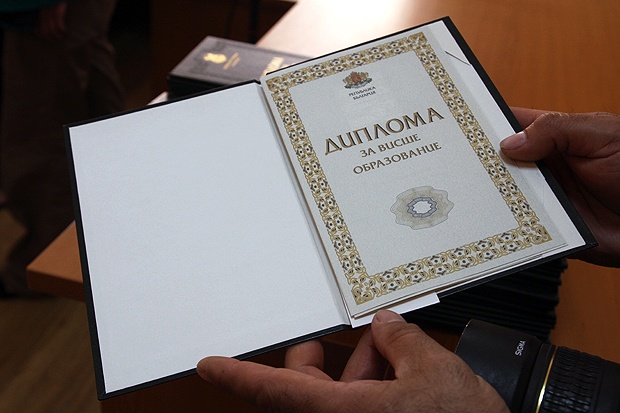 РЕПУБЛИКА
БЪЛГАРИЯ
ДИПЛОМА
ЗА ВИСШЕ
ОБРАЗОВАНИЕ
SIGMA